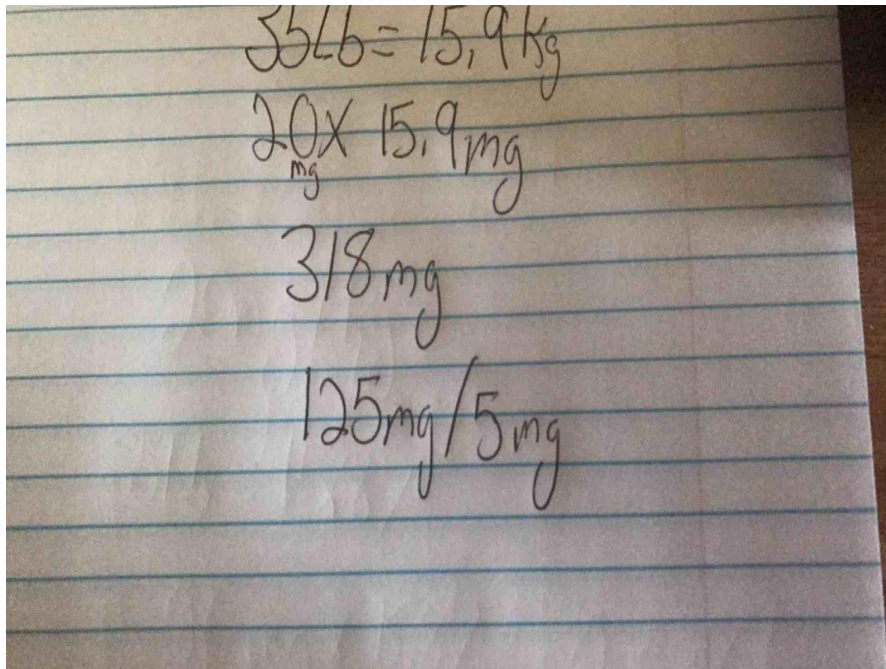 35Lb = 15,9 Kg
20 X 15,9 mg
mg
318 mg
125mg/5mg